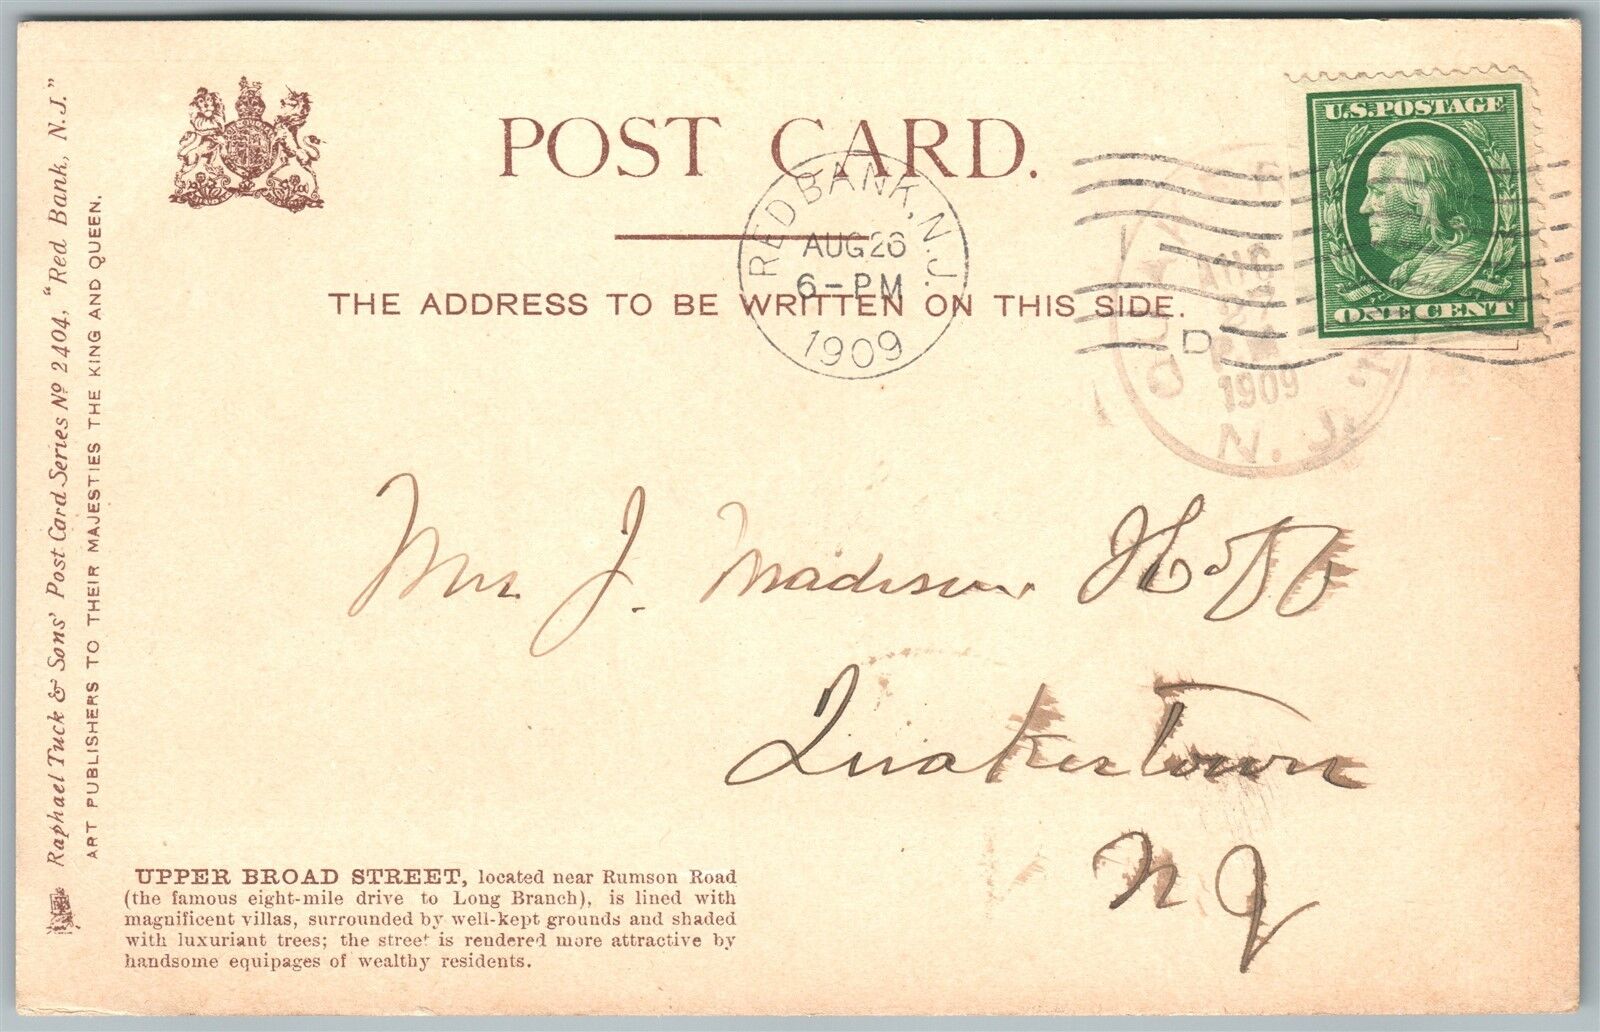 POST CARD.
THE ADDRESS TO BE WRITTEN ON THIS SIDE.
U.S. POSTAGE
ONE CENT
RED BANK, N.J.
AUG 26
6-PM
1909
D
AUG
27
1909
N. J.
Mrs. J. Madison Hoff
Quakertown
N J
Raphael Tuck & Sons' Post Card Series No 2404, "Red Bank, N.J."
ART PUBLISHERS TO THEIR MAJESTIES THE KING AND QUEEN.
UPPER BROAD STREET, located near Rumson Road
(the famous eight-mile drive to Long Branch), is lined with
magnificent villas, surrounded by well-kept grounds and shaded
with luxuriant trees; the street is rendered more attractive by
handsome equipages of wealthy residents.